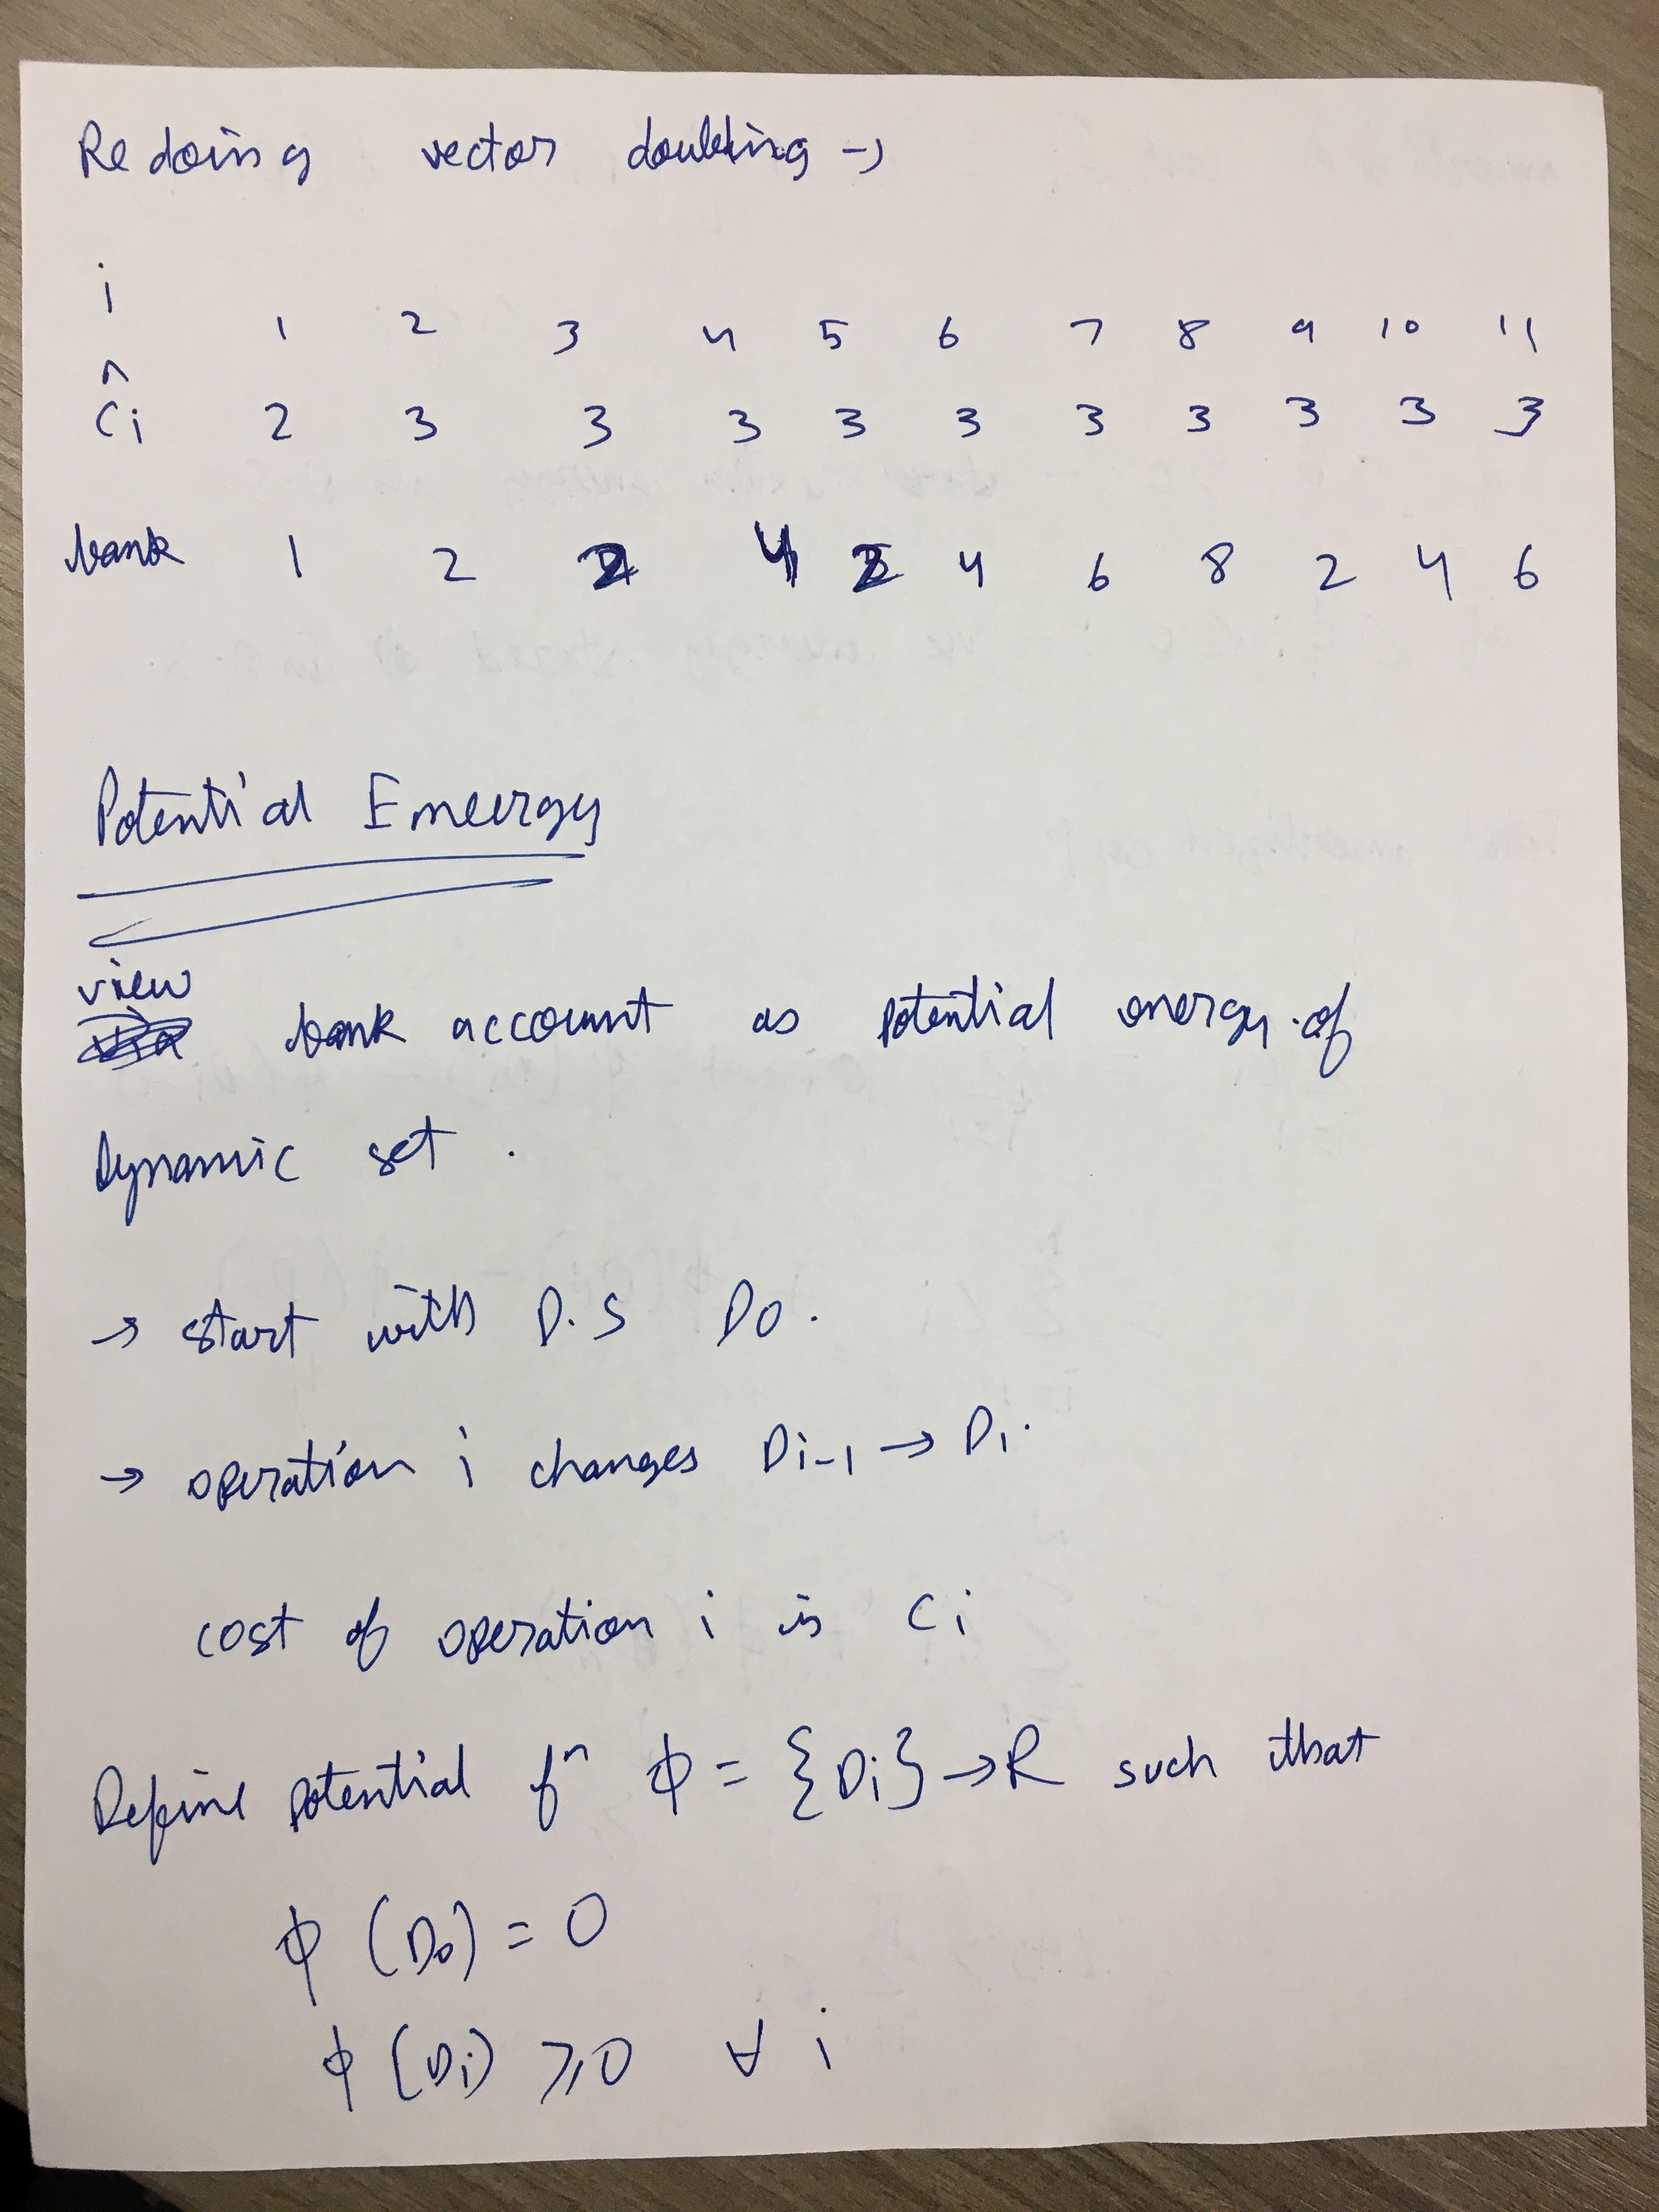 Redoing vector doubling →
i 1 2 3 4 5 6 7 8 9 10 11
ĉi 2 3 3 3 3 3 3 3 3 3 3
bank 1 2 2 4 2 4 6 8 2 4 6
Potential Eneergy
view bank account as potential energy of
Dynamic set .
→ start with D.S D0.
→ operation i changes Di-1 → Di.
cost of operation i is Ci
Define potential fn ϕ = {Di} → R such that
ϕ (D0) = 0
ϕ (Di) ⩾ 0 ∀ i